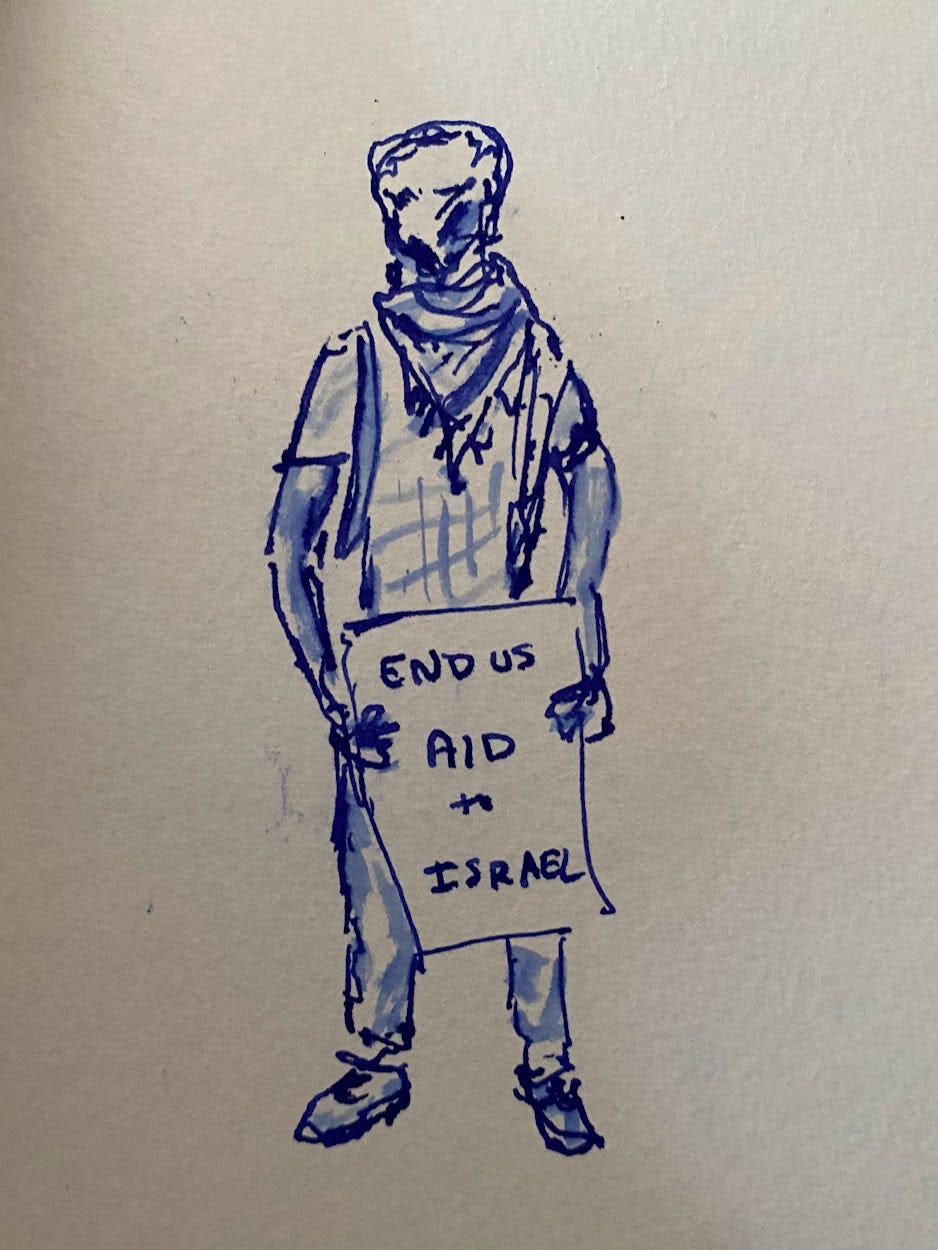 END US
AID
to
ISRAEL